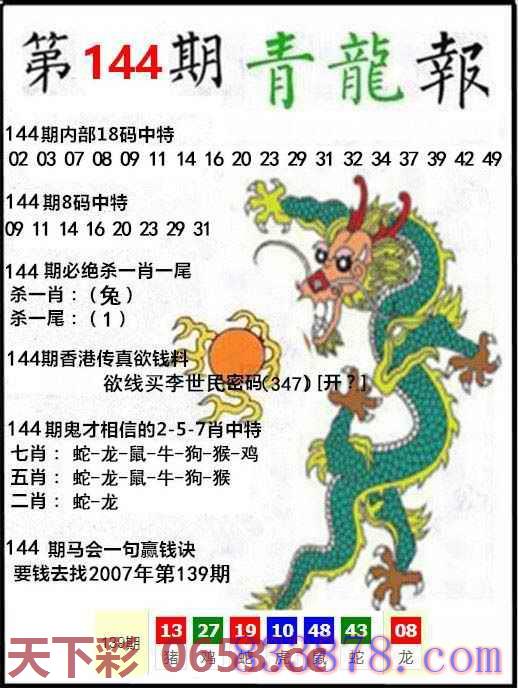 第144期青龍報
144期内部18码中特
02 03 07 08 09 11 14 16 20 23 29 31 32 34 37 39 42 49
144期8码中特
09 11 14 16 20 23 29 31
144期必绝杀一肖一尾
杀一肖：(兔)
杀一尾：(1)
144期香港传真欲钱料
欲线买李世民密码(347)[开?]
144期鬼才相信的2-5-7肖中特
七肖：蛇-龙-鼠-牛-狗-猴-鸡
五肖：蛇-龙-鼠-牛-狗-猴
二肖：蛇-龙
144期马会一句赢钱诀
要钱去找2007年第139期
139期 13 27 19 10 48 43 08
猪 鸡 蛇 虎 鼠 蛇 龙
天下彩 0653.cc